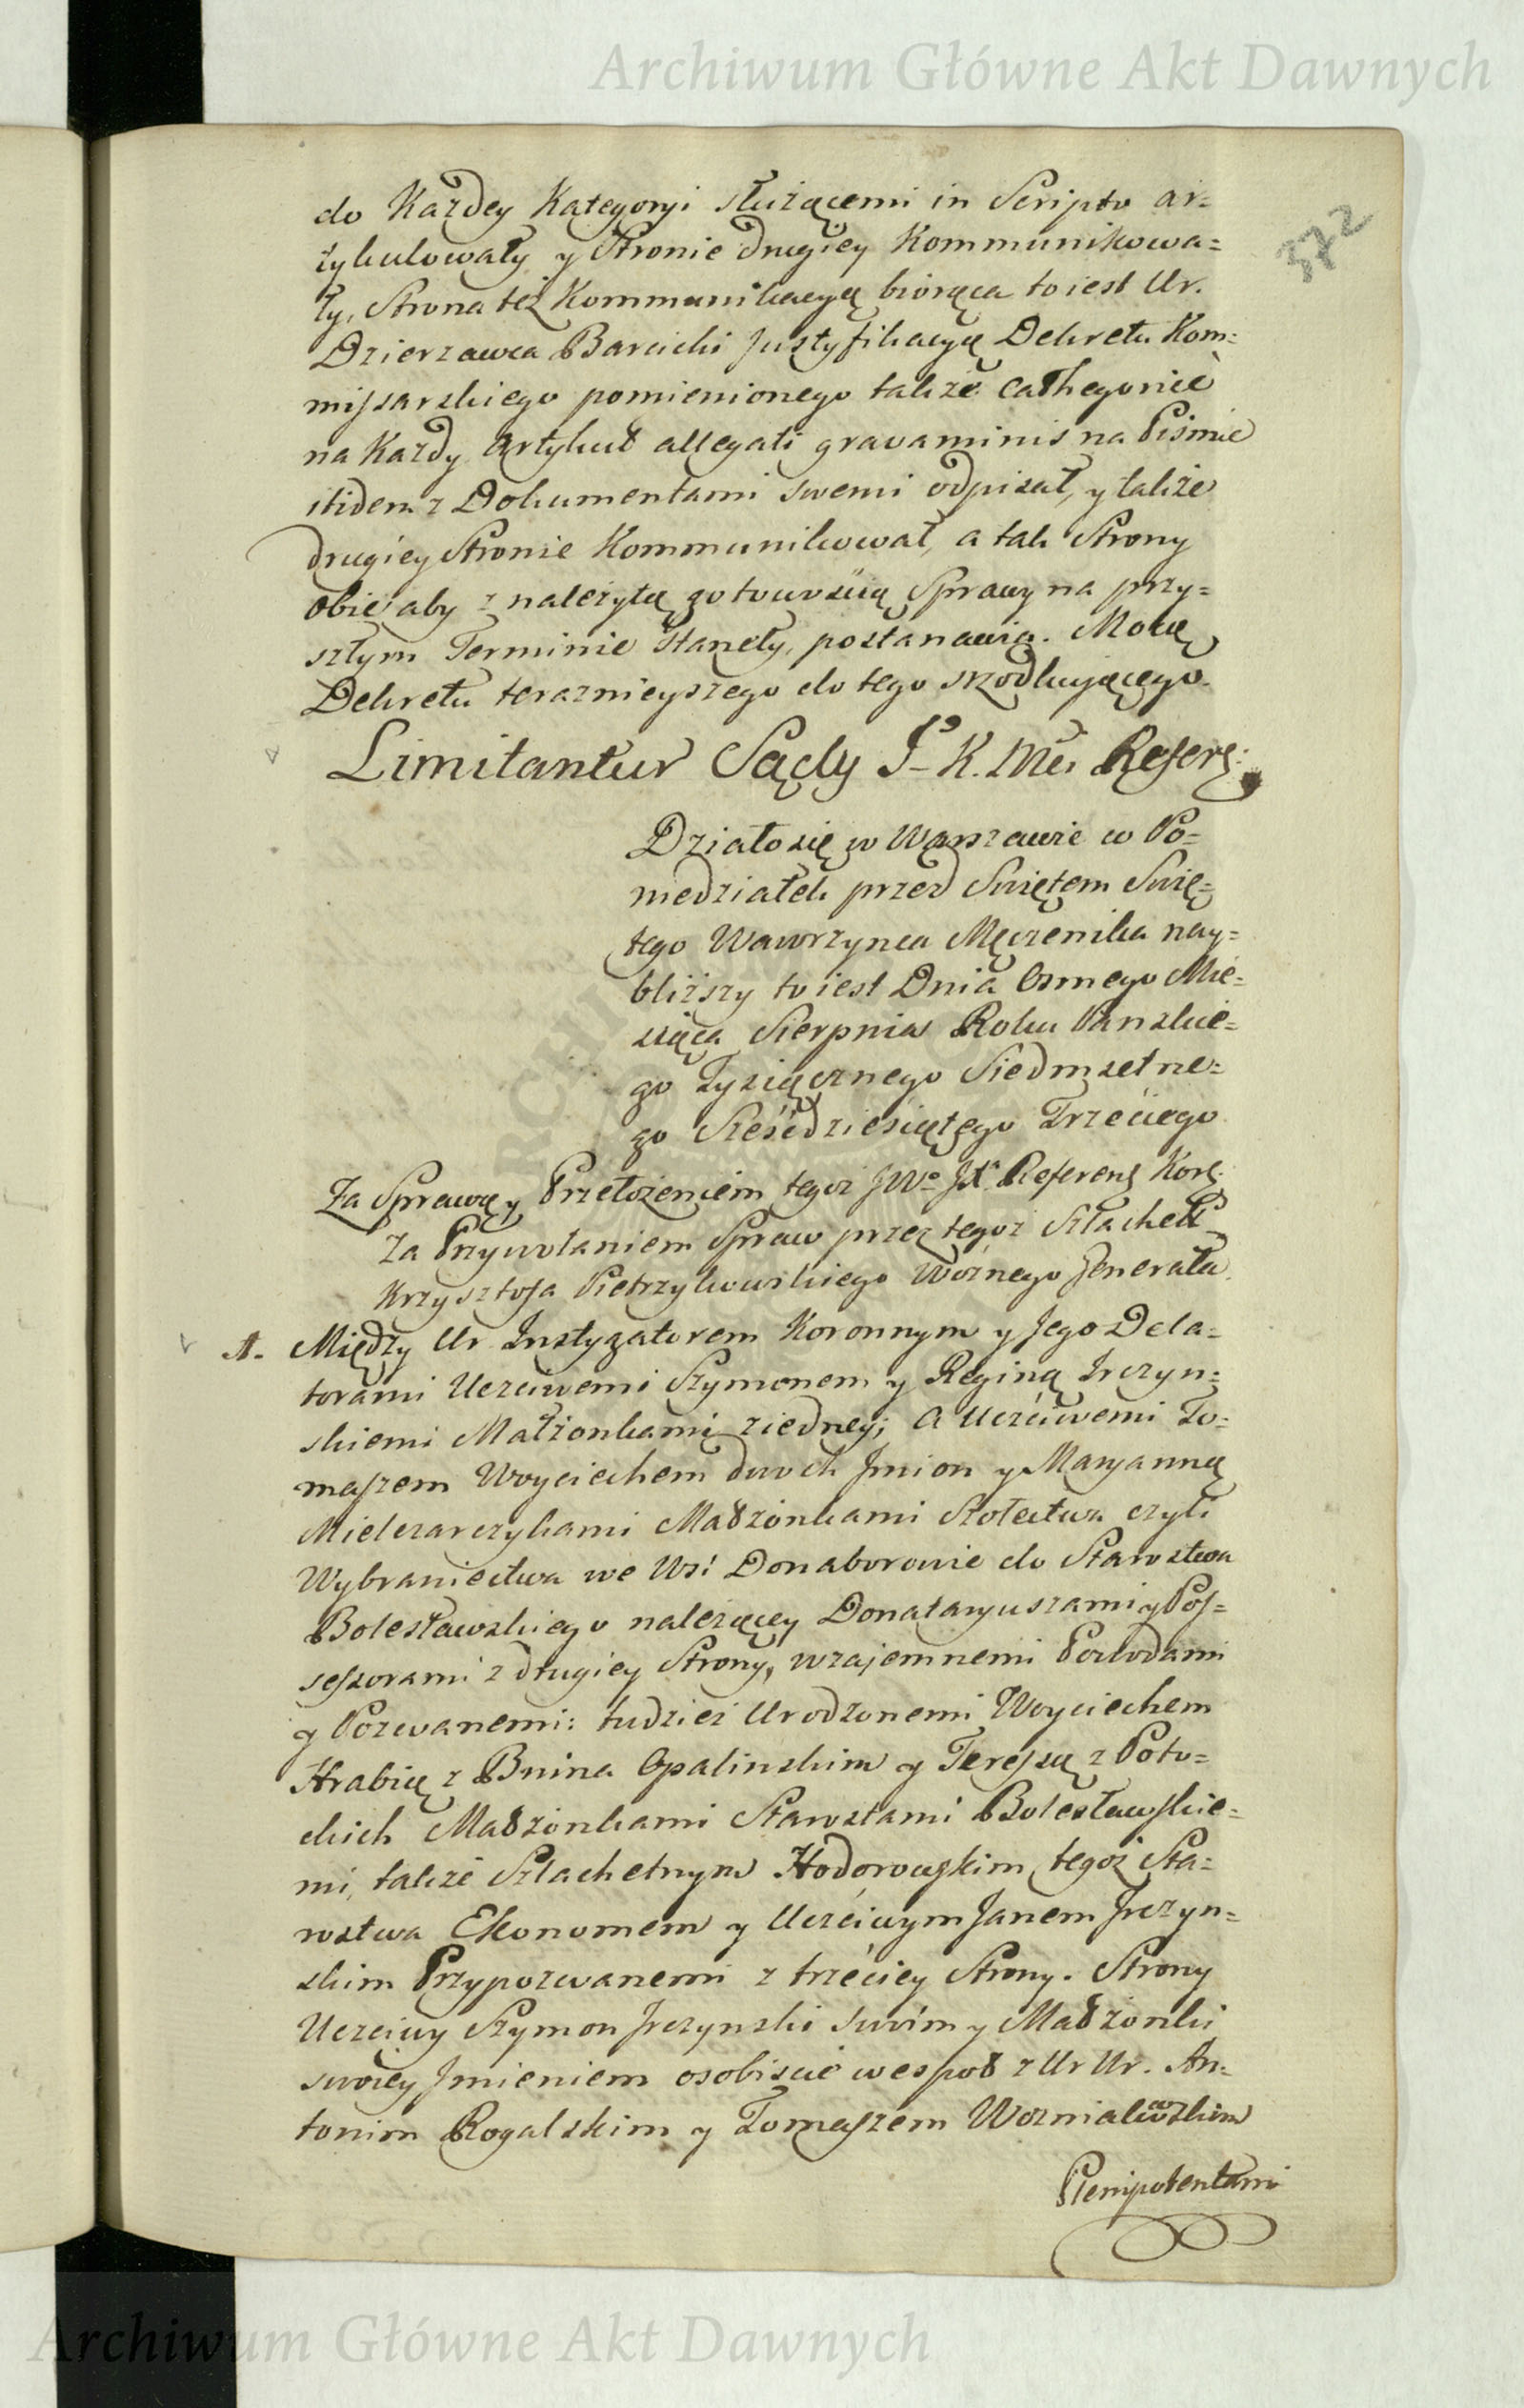 Archiwum Główne Akt Dawnych
572
do Każdey Kategoryi służącemi in Scripto ar=
tykulowały y Stronie drugiey Kommunikowa=
ły, Strona też Kommunikacyą biorąca to iest Ur.
Dzierzawca Barcicki Justyfikacyą Dekretu Kom=
missarskiego pomienionego także Cathegorice
na Każdy Artykuł allegati gravaminis na Piśmie
itidem z Dokumentami swemi odpisał, y także
drugiey Stronie Kommunikował, a tak Strony
obie aby z należytą gotowością Sprawy na przy=
szłym Terminie Stanęły, postanawia. Mocą
Dekretu teraznieyszego do tego skodkującego.
Limitantur Sądy J K. Mci Referę:
Działo się w Warszawie w Po=
niedziałek przed Swiętem Swię=
tego Wawrzynca Męczenika nay=
bliższy to iest Dnia Osmego Mie=
siąca Sierpnia Roku Panskie=
go Tysiącznego Siedmsetne=
go Sześćdziesiątego Trzeciego
Za Sprawą y Przełożeniem tegoż JWo Jx Referenę Korę.
Za Przywołaniem Spraw przez tegoż Szlachetę
Krzysztofa Pietrzykowskiego Woźnego Jenerała.
1. Między Ur Instygatorem Koronnym y Jego Dela=
torami Uczciwemi Szymonem y Reginą Jrczyn=
skiemi Małżonkami z iedney; a Uczciwemi To=
maszem Woyciechem dwoch Jmion y Maryanną
Mielcarczykami Małżonkami Szołectwa czyli
Wybraniectwa we Wsi Donaborowie do Starostwa
Bolesławskiego należącey Donataryuszami y Pos=
sessorami z drugiey Strony, wzajemnemi Powodami
y Pozwanemi: tudzież Urodzonemi Woyciechem
Hrabią z Bnina Opalinskim y Teressą z Poto=
ckich Małżonkami Starostami Bolesławskie=
mi, także Szlachetnym Hodorowskim tegoż Sta=
rostwa Ekonomem y Uczciwym Janem Jrczyn=
skim Przypozwanemi z trzeciey Strony. Strony
Uczciwy Szymon Jrczynski swoim y Małżonki
swoiey Jmieniem osobiście wespoł z Ur Ur. An=
tonim Rogalskim y Tomaszem Wozniakowskim
Plenipotentami
Archiwum Główne Akt Dawnych